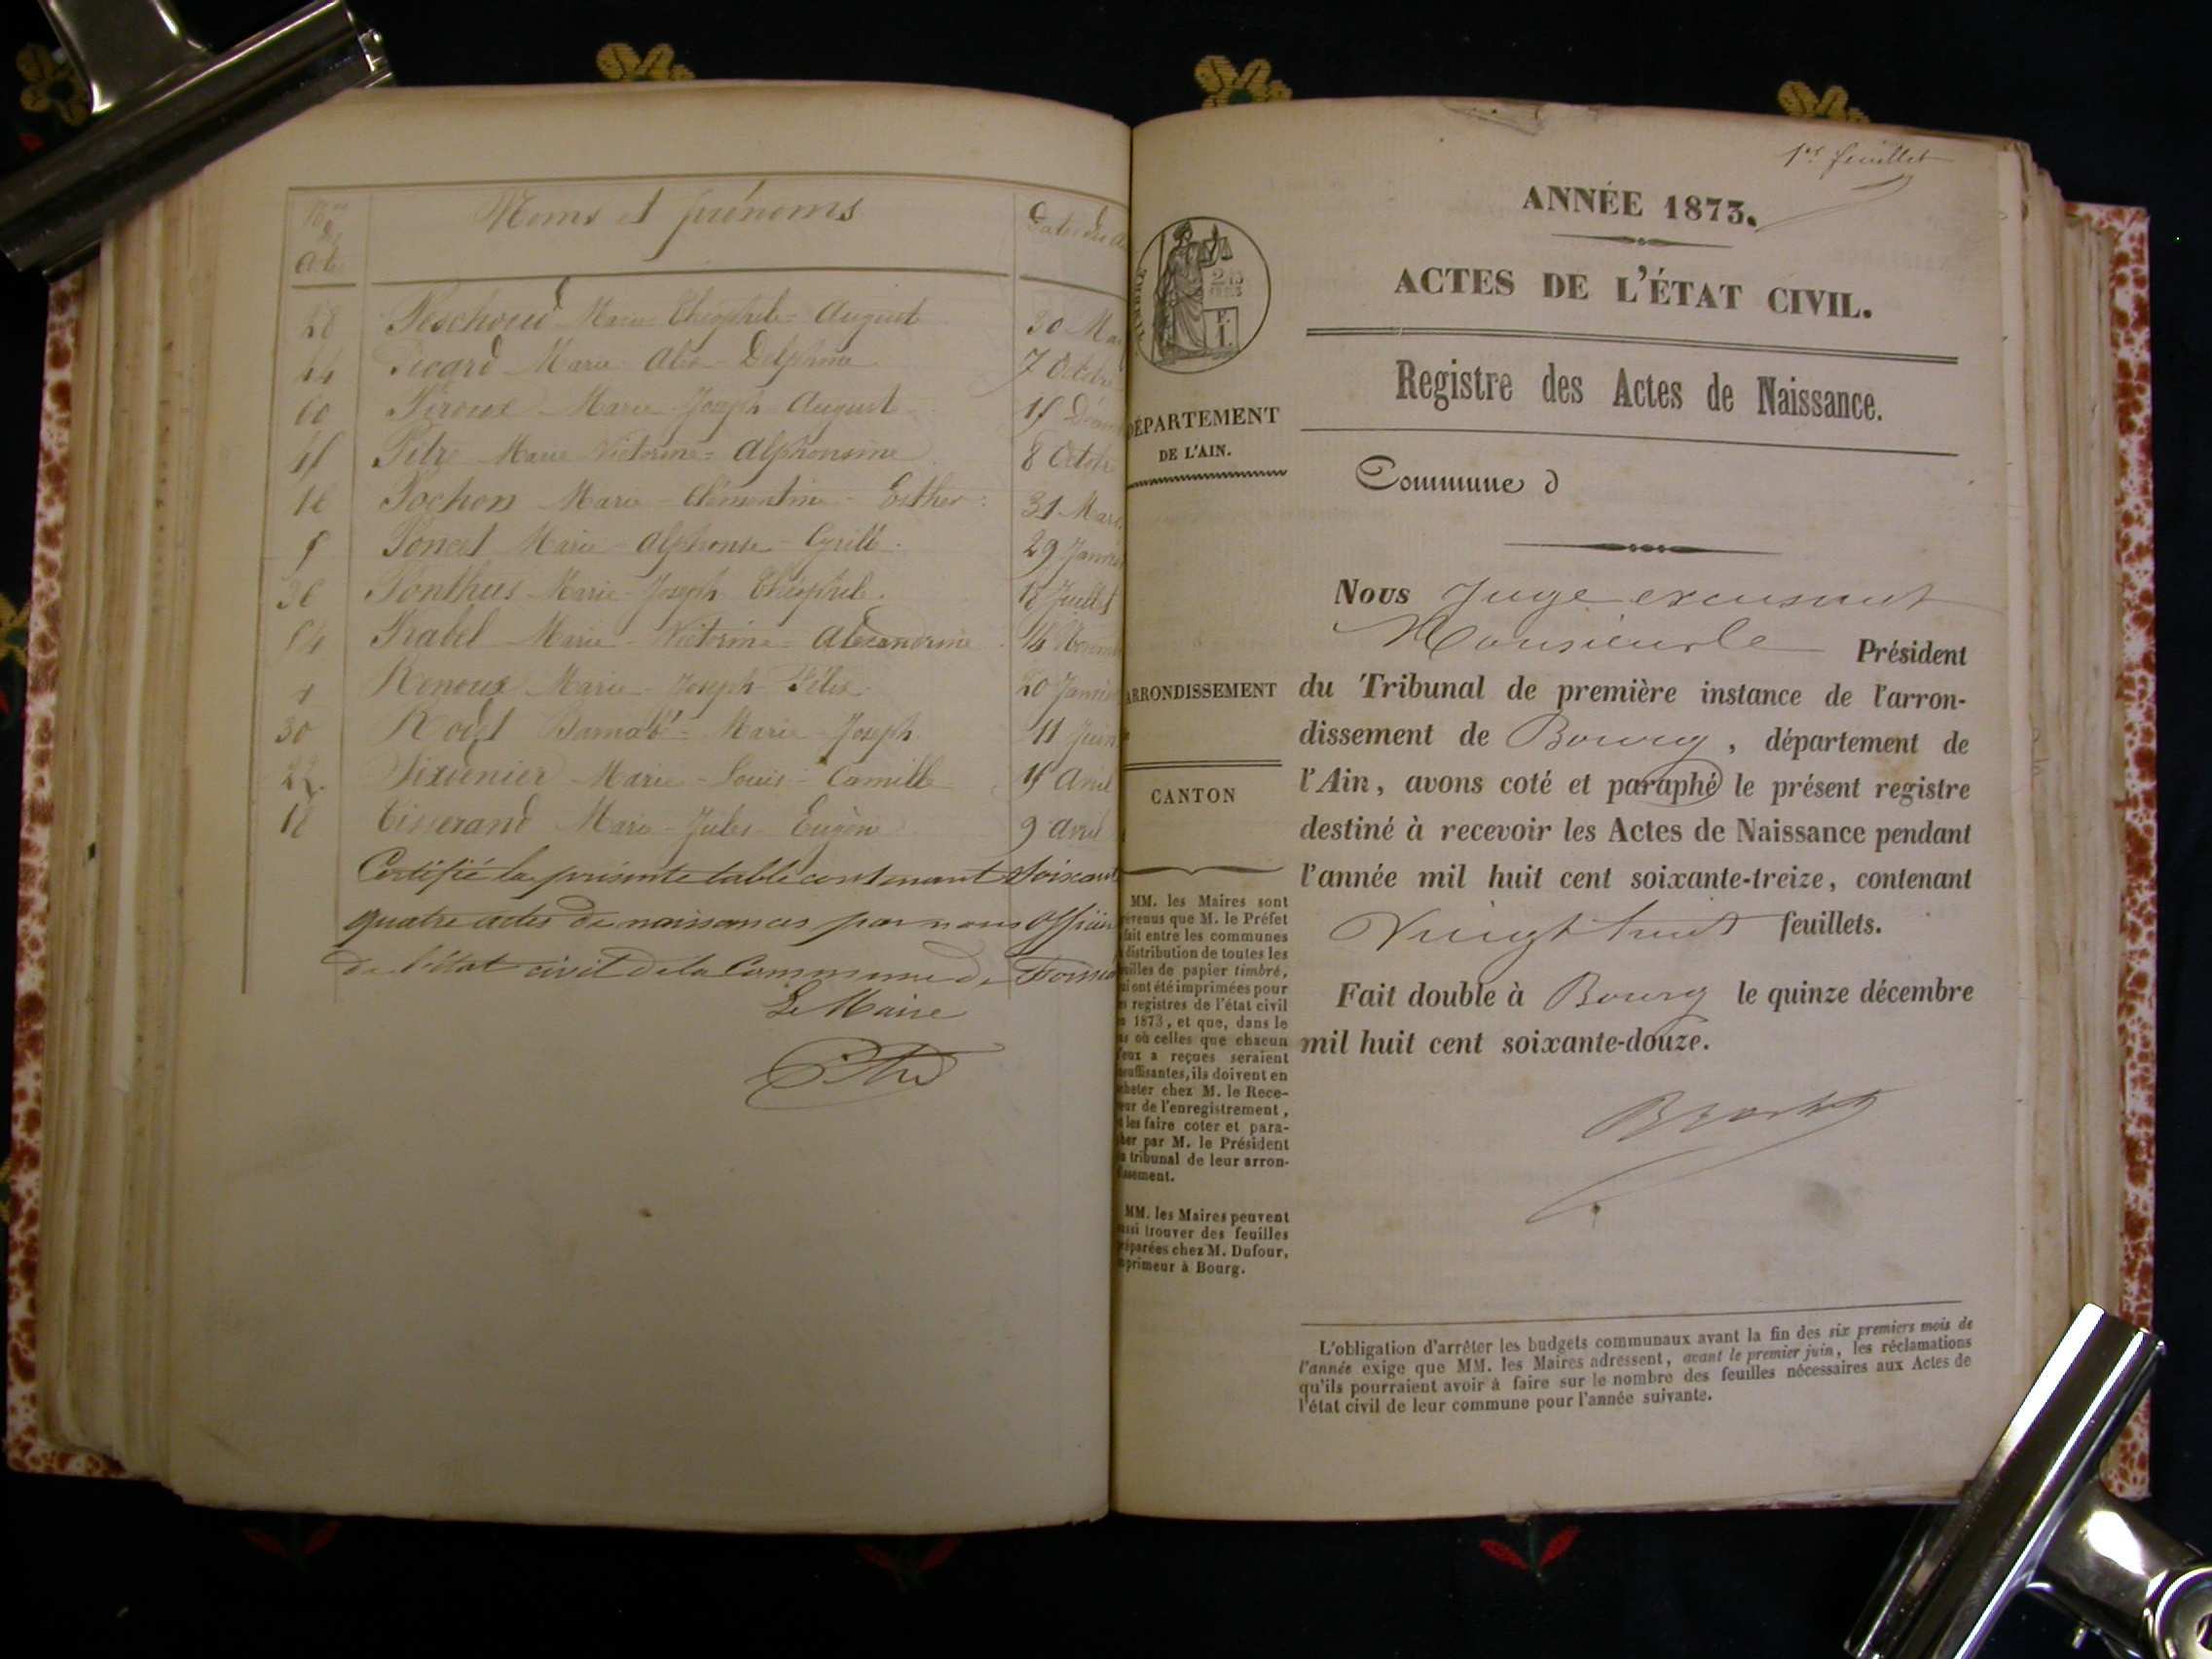 Noms et prénoms
Peschoud Marie Théophile August 30 Ma
Picard Marie Delphine 7 Octobre
60 Piroux Marie Joseph August
Pitre Marie Victorine Alphonsine 8 Octob
Pochon Marie Clémentine Esther 31 Mars
Poncet Marie Alphonse Cyrille 29 Janvier
Ponthus Marie Joseph Théophile 18 Juillet
54 Prabel Marie Victorine Alexandrine 14 Novem
Renoux Marie Joseph Félix 20 Janvie
30 Rodet Barnabé Marie Joseph 11 Juin
Marie Louis Camille Avril
18 Tisserand Marie Jules Eugène 9 Avril
Certifié la présente table contenant soixant
quatre actes de naissances par nous officier
de l'état civil de la Commune de
Le Maire
1er feuillet
ANNÉE 1873.
ACTES DE L'ÉTAT CIVIL.
Registre des Actes de Naissance.
TIMBRE
DÉPARTEMENT
DE L'AIN.
ARRONDISSEMENT
CANTON
MM. les Maires sont
révenus que M. le Préfet
fait entre les communes
distribution de toutes les
uilles de papier timbré,
ui ont été imprimées pour
s registres de l'état civil
1873, et que, dans le
as où celles que chacun
'eux a reçues seraient
nsuffisantes, ils doivent en
cheter chez M. le Rece-
eur de l'enregistrement,
les faire coter et para-
her par M. le Président
u tribunal de leur arron-
issement.
MM. les Maires peuvent
ussi trouver des feuilles
réparées chez M. Dufour,
mprimeur à Bourg.
Commune d
Nous Juge excusant
Monsieur le Président
du Tribunal de première instance de l'arron-
dissement de Bourg, département de
l'Ain, avons coté et paraphé le présent registre
destiné à recevoir les Actes de Naissance pendant
l'année mil huit cent soixante-treize, contenant
Vingt huit feuillets.
Fait double à Bourg le quinze décembre
mil huit cent soixante-douze.
L'obligation d'arrêter les budgets communaux avant la fin des six premiers mois de
l'année exige que MM. les Maires adressent, avant le premier juin, les réclamations
qu'ils pourraient avoir à faire sur le nombre des feuilles nécessaires aux Actes de
l'état civil de leur commune pour l'année suivante.